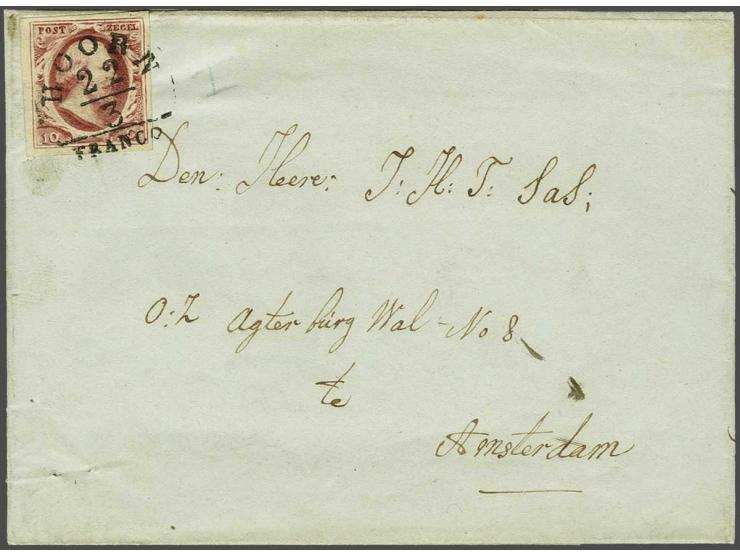 POST ZEGEL
HOORN
22
3
10
FRANCO
Den: Heere: J: H: T: Sas;
O:Z Agterburg Wal - No 8
te
Amsterdam